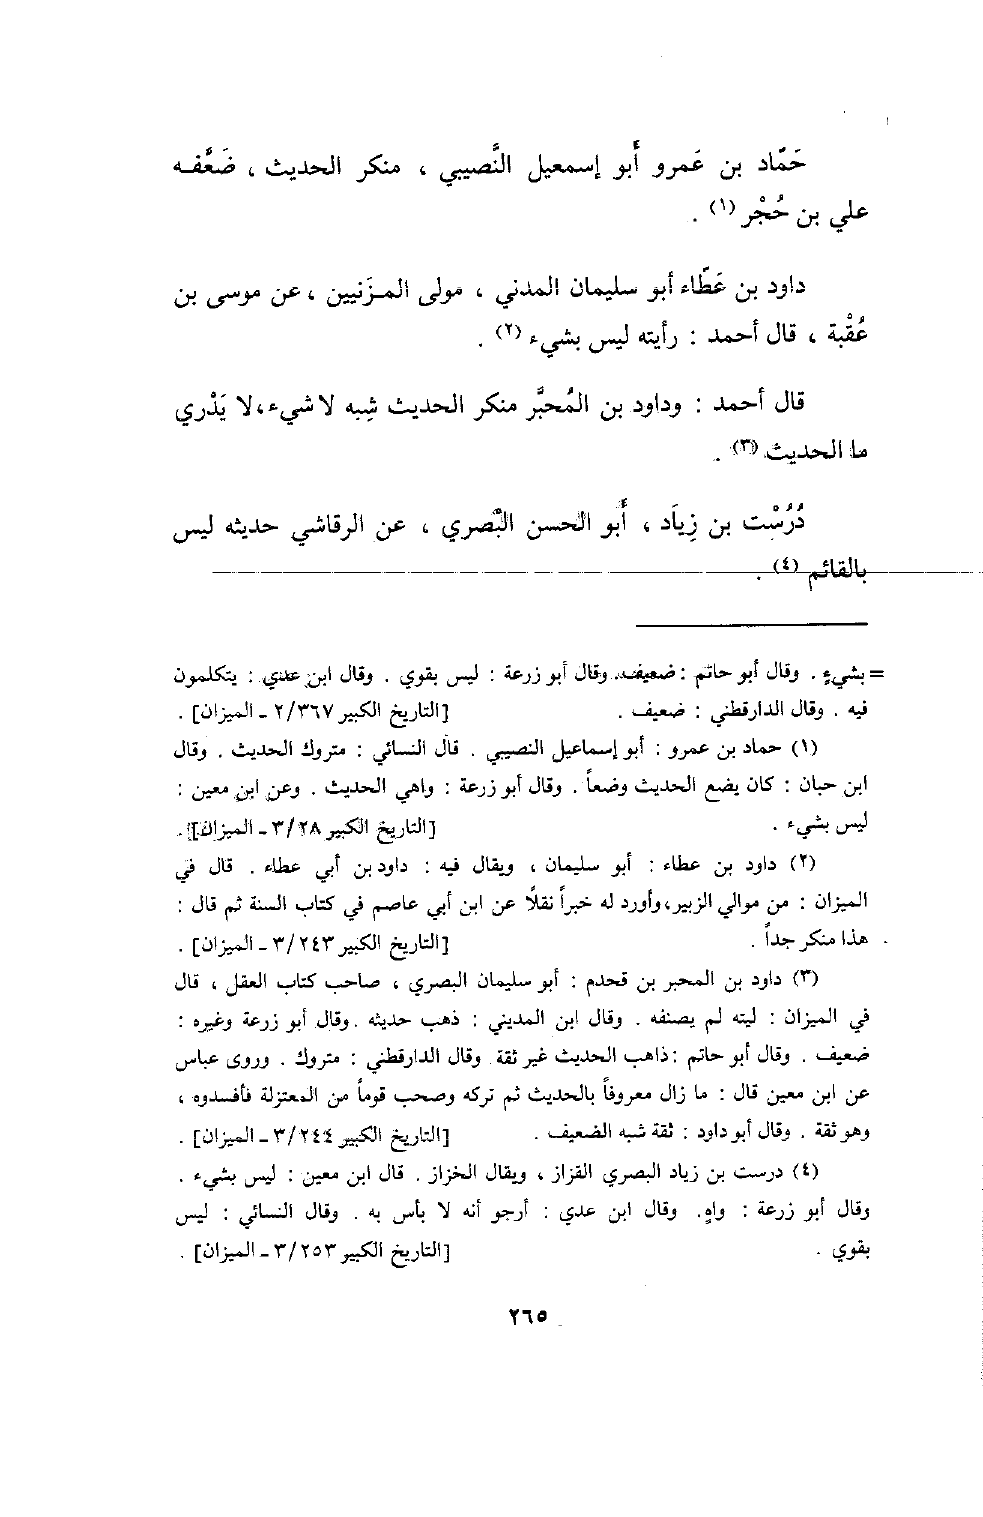 حَمَّاد بن عَمرو أَبو إسمعيل النَّصيبي ، منكر الحديث ، ضَعَّفه
علي بن حُجْر (١) .
داود بن عَطّاء أبو سليمان المدني ، مولى المزَنيين ، عن موسى بن
عُقْبة ، قال أحمد : رأيته ليس بشيء (٢) .
قال أحمد : وداود بن المُحبَّر منكر الحديث شِبه لا شيء، لا يَدْري
ما الحديث (٣) .
دُرُسْت بن زِيَاد ، أَبو الحسن البَّصري ، عن الرقاشي حديثه ليس
بالقائم (٤) .
= بشيءٍ . وقال أبو حاتم : ضعيف. وقال أبو زرعة : ليس بقوي . وقال ابن عدي : يتكلمون
فيه . وقال الدارقطني : ضعيف . [التاريخ الكبير ٢/٣٦٧ - الميزان] .
(١) حماد بن عمرو : أبو إسماعيل النصيبي . قال النسائي : متروك الحديث . وقال
ابن حبان : كان يضع الحديث وضعاً . وقال أبو زرعة : واهي الحديث . وعن ابن معين :
ليس بشيء . [التاريخ الكبير ٣/٢٨ - الميزان] .
(٢) داود بن عطاء : أبو سليمان ، ويقال فيه : داود بن أبي عطاء . قال في
الميزان : من موالي الزبير، وأورد له خبراً نقلاً عن ابن أبي عاصم في كتاب السنة ثم قال :
هذا منكر جداً . [التاريخ الكبير ٣/٢٤٣ - الميزان] .
(٣) داود بن المحبر بن قحدم : أبو سليمان البصري ، صاحب كتاب العقل ، قال
في الميزان : ليته لم يصنفه . وقال ابن المديني : ذهب حديثه . وقال أبو زرعة وغيره :
ضعيف . وقال أبو حاتم : ذاهب الحديث غير ثقة وقال الدارقطني : متروك . وروى عباس
عن ابن معين قال : ما زال معروفاً بالحديث ثم تركه وصحب قوماً من المعتزلة فأفسدوه ،
وهو ثقة . وقال أبو داود : ثقة شبه الضعيف . [التاريخ الكبير ٣/٢٤٤ - الميزان] .
(٤) درست بن زياد البصري القزاز ، ويقال الخزاز . قال ابن معين : ليس بشيء .
وقال أبو زرعة : واهٍ. وقال ابن عدي : أرجو أنه لا بأس به . وقال النسائي : ليس
بقوي . [التاريخ الكبير ٣/٢٥٣ - الميزان] .
٢٦٥